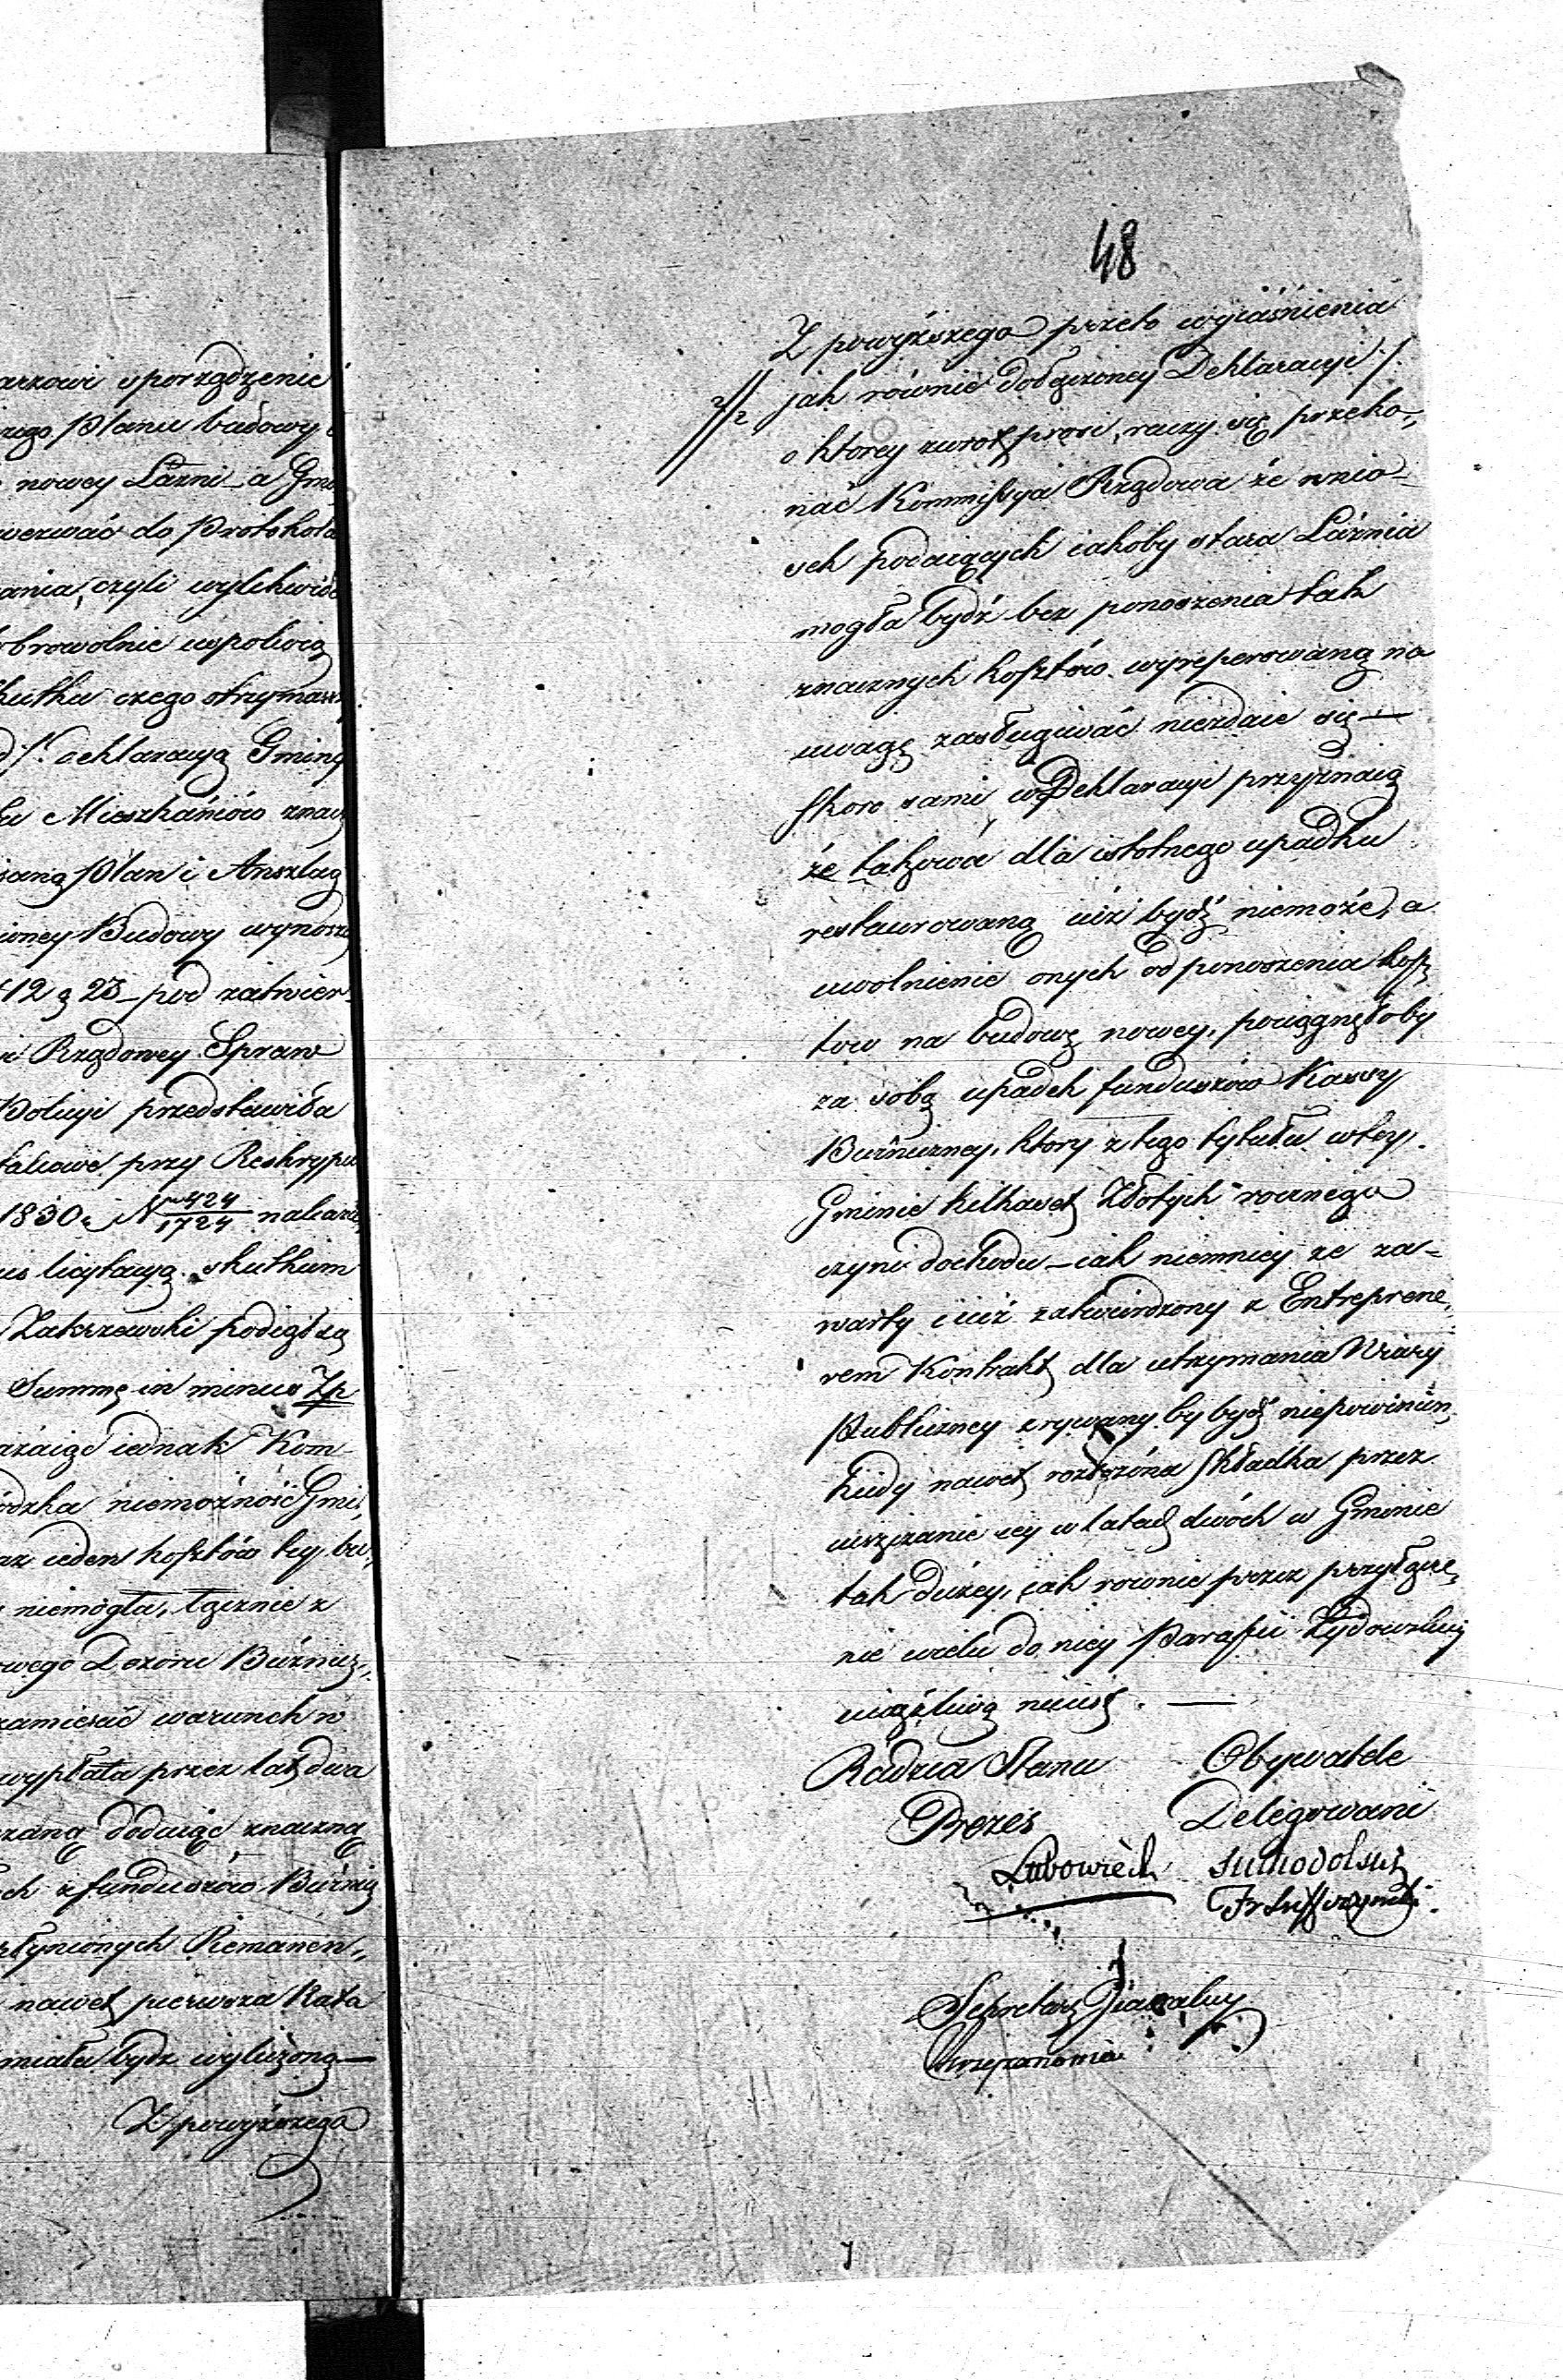 arzowi sporządzenie
nowey Łazni – a Gmi
wezwać do Protokoła
ania, czyli wylikwido
obrowolnie uspokoią
skutku czego otrzymaszy
deklaracyą Gminy
Mieszkańców znaw
Plan i Anszlag
ioney Budowy wynosz
412 g 23 – pod zatwier
Rządowey Spraw
Policyi przedstawiła
takowe przy Reskrypci
1830 r. N 424/1724 nakaza
licytacyą skutkiem
Zakrzewski podiął za
Summę in minus Zp
ażaiąc iednak Kom
ódzka niemożność Gmi„
az ieden kosztów tey bu„
niemogła, łącznie z
owego Dozoru Bużnicz„
zamieścić warunek w
wypłata przez lat dwa
zaną dodaiąc znaczną
ch z funduszów Bużnicz
Remanen„
nawet pierwsza Rata
miała bydz wyliczoną –
Z powyższego
48
Z powyższego przeto wyiaśnienia
jak równie dołączoney Deklaracyi ./.
//2 o ktorey zwrot prosi, raczy się przeko„
nać Kommissya Rządowa że wnio–
sek podaiących iakoby stara Łaźnia
mogła bydź bez ponoszenia tak
znacznych kosztów wyreperowaną na
uwagę zasługiwać niezdaie się –
skoro sami w Deklaracyi przyznaią
że takowa dla istotnego upadku
restaurowaną iuż bydź niemoże, a
uwolnienie onych od ponoszenia kosz
tow na budowę nowey, pociągnęłoby
za sobą upadek funduszów Kassy
Bużniczney, ktory z tego tytułu w tey
Gminie kilkaset Złotych rocznego
czyni dochodu – iak niemniey ze za–
warty i iuż zatwierdzony z Entreprene„
rem Kontrakt dla utrzymania Wiary
Publiczney zrywany by bydź niepowinien,
kiedy nawet rozłożona składka przez
uiszczanie iey w latach dwóch w Gminie
tak dużey, iak rownie przez przyłącze„
nie wielu do niey Parafii Żydowskiey
uciążliwą nieiest. –
Radzca Stanu Obywatele
Prezes Delegowani
Lubowiecki Suchodolski
Sekretarz Jeneralny